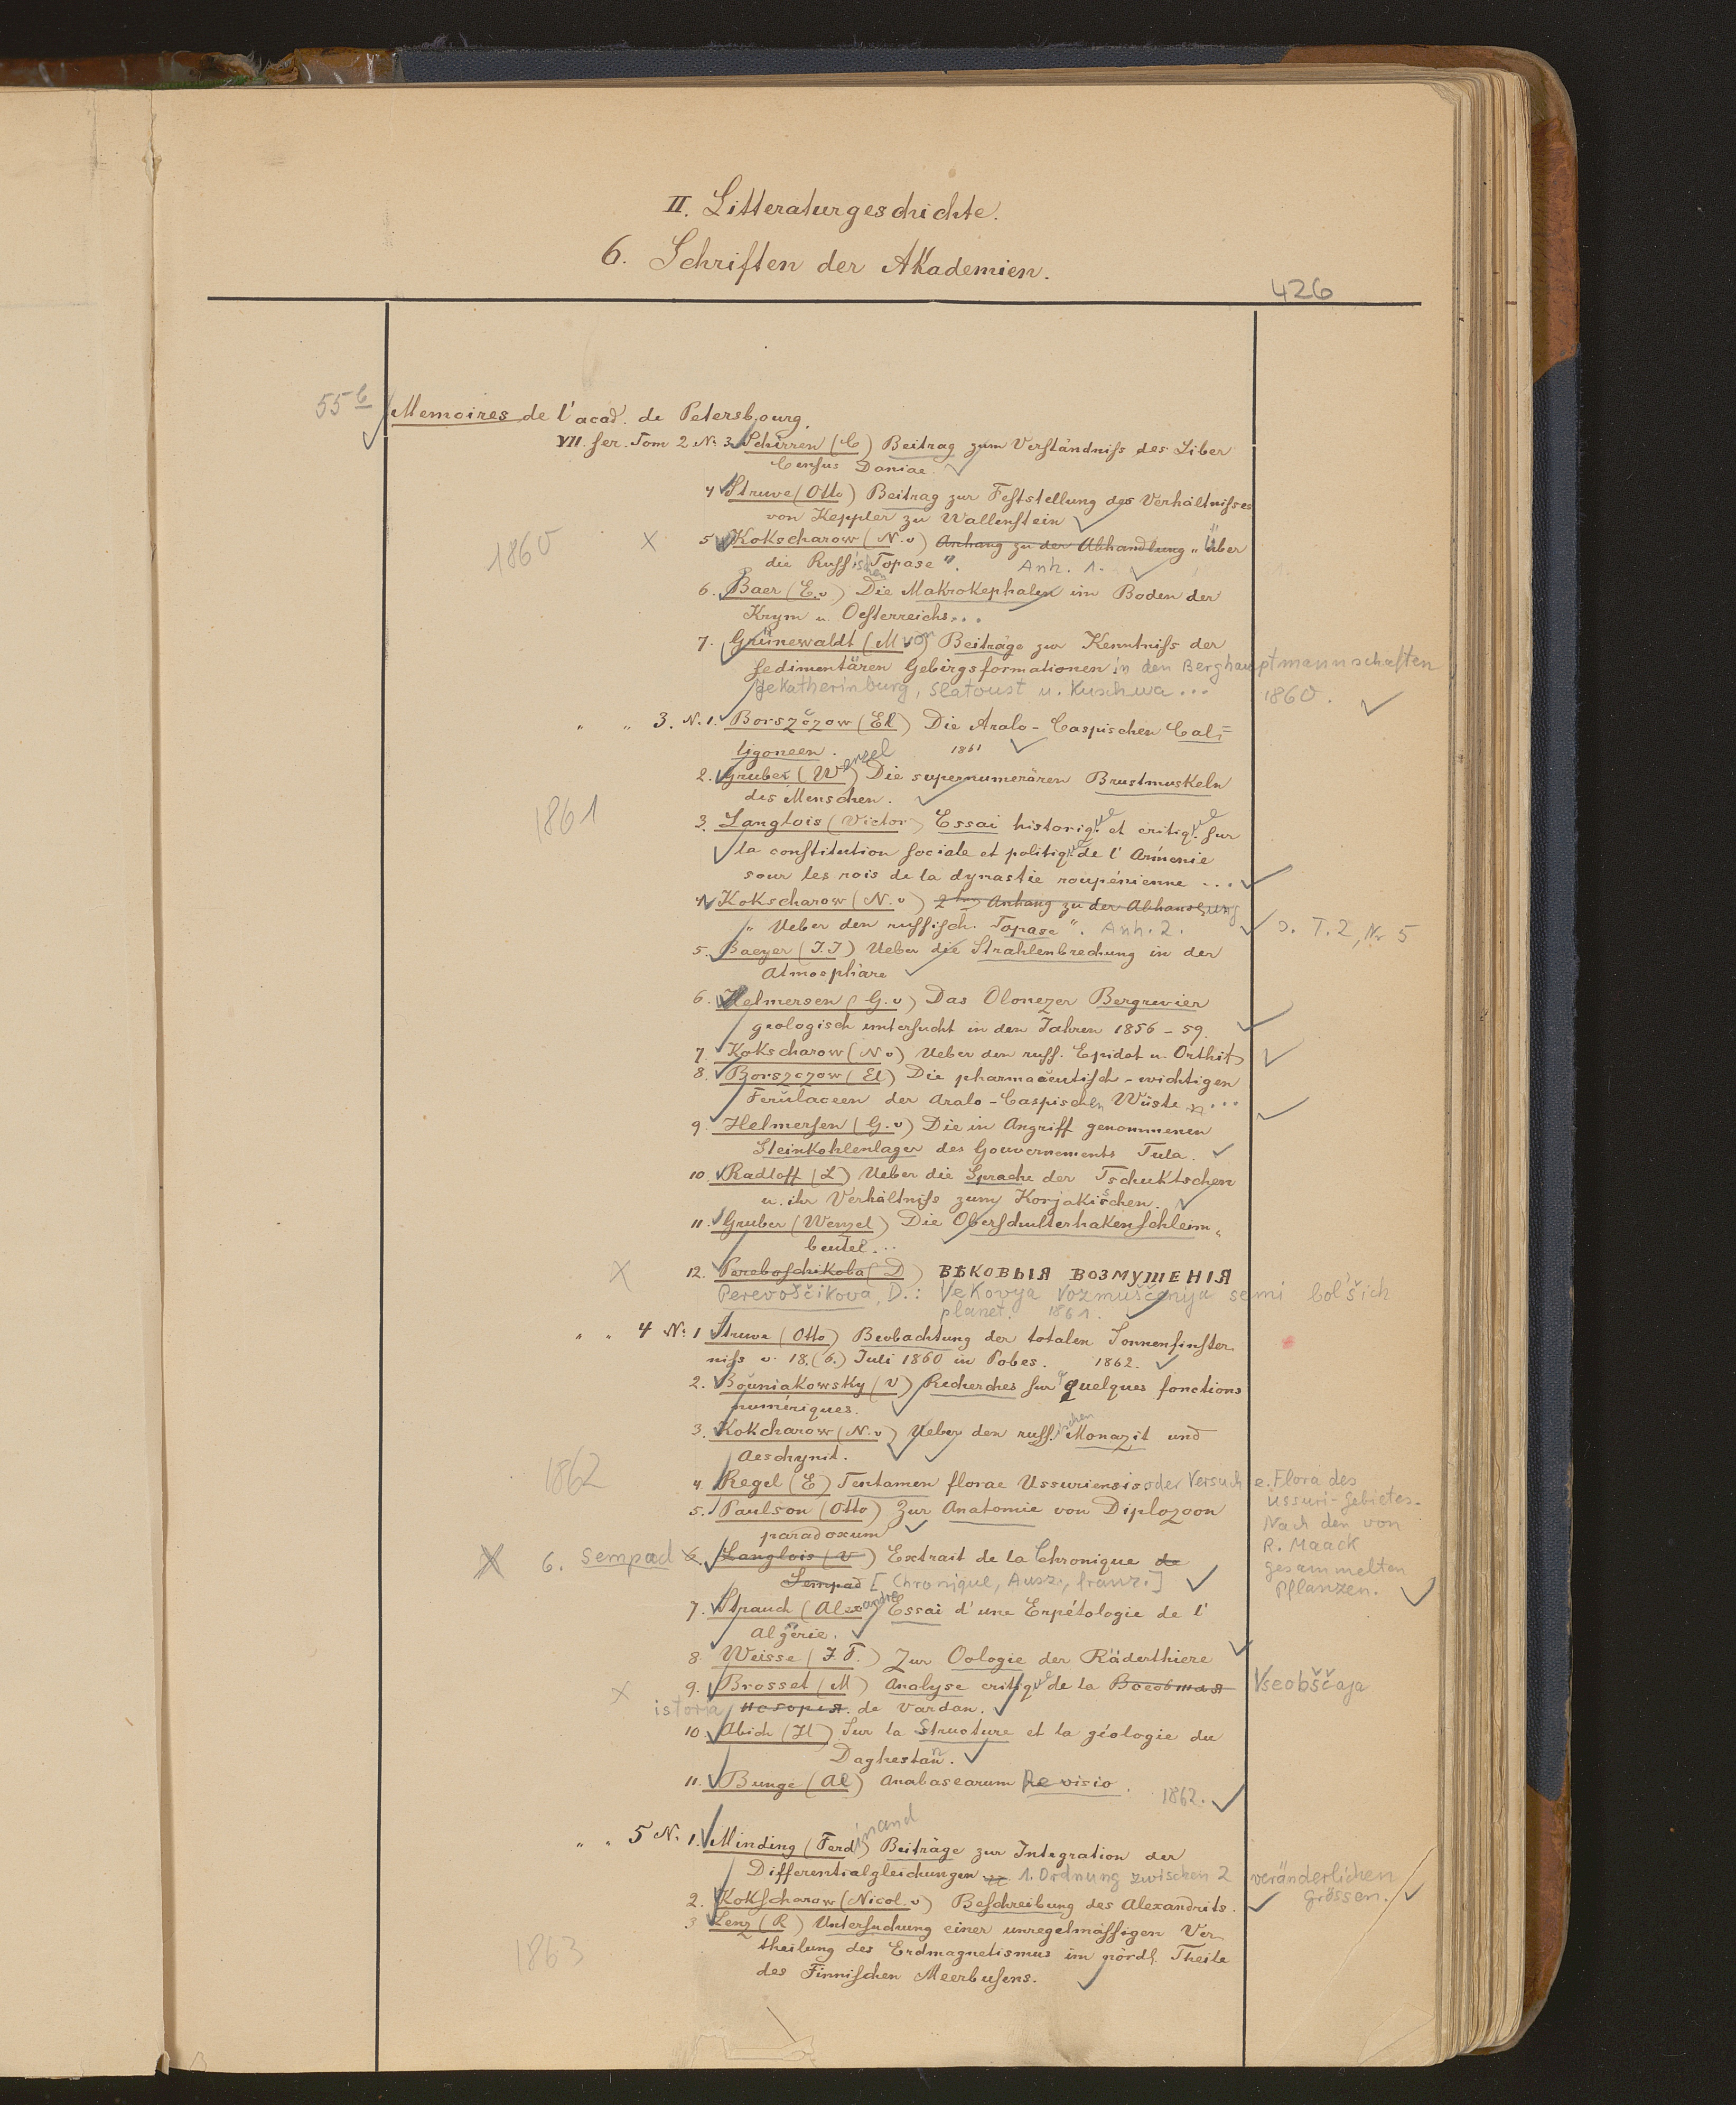 II. Litteraturgeschichte.
6. Schriften der Akademien.
426
55 b Memoires de l'acad. de Petersbourg.
VII. Ser. Tom 2 No. 3 Schirren (C) Beitrag zum Verständniss des Liber
Census Daniae.
4 Struve (Otto) Beitrag zur Feststellung des Verhältnisses
von Keppler zu Wallenstein
1860 X 5 Kokscharow (N. v) Anhang zu der Abhandlung „Über
die Russischen Topase". Anh. 1.
6. Baer (E. v) Die Makrokephalen im Boden der
Krym u. Oesterreichs...
7. Grünewaldt (M von) Beiträge zur Kenntniss der
sedimentären Gebirgsformationen in den Berghauptmannschaften
Jekatherinburg, Slatoust u. Kuschwa... 1860.
" " 3. N. 1. Borszczow (El) Die Aralo-Caspischen Cal=
ligoneen. 1861
2. Gruber (Wenzel) Die supernumerären Brustmuskeln
des Menschen.
1861
3. Langlois (Victor) Essai historique et critique sur
la constitution sociale et politique de l'Armenie
sour les rois de la dynastie roupénienne ...
4 Kokscharow (N. v) 2ter Anhang zu der Abhandlung
„Ueber den russisch. Topase". Anh. 2. s. T. 2, Nr 5
5. Baeyer (J.J) Ueber die Strahlenbrechung in der
Atmosphäre
6. Helmersen (G. v) Das Olonezer Bergrevier
geologisch untersucht in den Jahren 1856-59.
7. Kokscharow (N v) Ueber den russ. Epidot u. Orthit
8. Borszczow (El) Die pharmaceutisch-wichtigen
Ferulaceen der Aralo-Caspischen Wüste ...
9. Helmersen (G. v) Die in Angriff genommenen
Steinkohlenlager des Gouvernements Tula.
10. Radloff (L) Ueber die Sprache der Tschuktschen
u. ihr Verhältniss zum Korjakischen.
11. Gruber (Wenzel) Die Oberschulterhakenschleim„
beutel...
X 12. Pereboschikoba (D) ВѢКОВЫЯ ВОЗМУШЕНІЯ
Perevoščikova, D.: Vekovyja vozmuščenija semi bol'šich
planet. 1861.
" " 4 No. 1 Struve (Otto) Beobachtung der totalen Sonnenfinster
niss v. 18. (6.) Juli 1860 in Pobes. 1862.
2. Bouniakowsky (V) Recherches sur quelques fonctions
numériques.
3. Kokcharow (N. v) Ueber den russischen Monazit und
Aeschynit.
1862
4. Regel (E) Tentamen florae Ussuriensis oder Versuch e. Flora des
Ussuri-Gebietes.
Nach den von
R. Maack
gesammelten
Pflanzen.
5. Paulson (Otto) Zur Anatomie von Diplozoon
paradoxum
X 6. Sempad 6. Langlois (V) Extrait de la Chronique de
Sempad [Chronique, Ausz., franz.]
7. Strauch (Alexandre) Essai d'une Erpétologie de l'
Algérie.
8. Weisse (J. F.) Zur Oologie der Räderthiere
X 9. Brosset (M) Analyse critique de la Всеобшая Vseobščaja
istoria исторія de Vardan.
10. Abich (H) Sur la Structure et la géologie du
Daghestan.
11. Bunge (Al) Anabasearum Revisio. 1862.
" " 5 N. 1. Minding (Ferdinand) Beiträge zur Integration der
Differentialgleichungen 1. Ordnung zwischen 2 veränderlichen
Grössen.
2. Kokscharow (Nicol. v) Beschreibung des Alexandrits.
3 Lenz (R) Untersuchung einer unregelmässigen Ver
theilung des Erdmagnetismus im nördl. Theile
des Finnischen Meerbusens.
1863